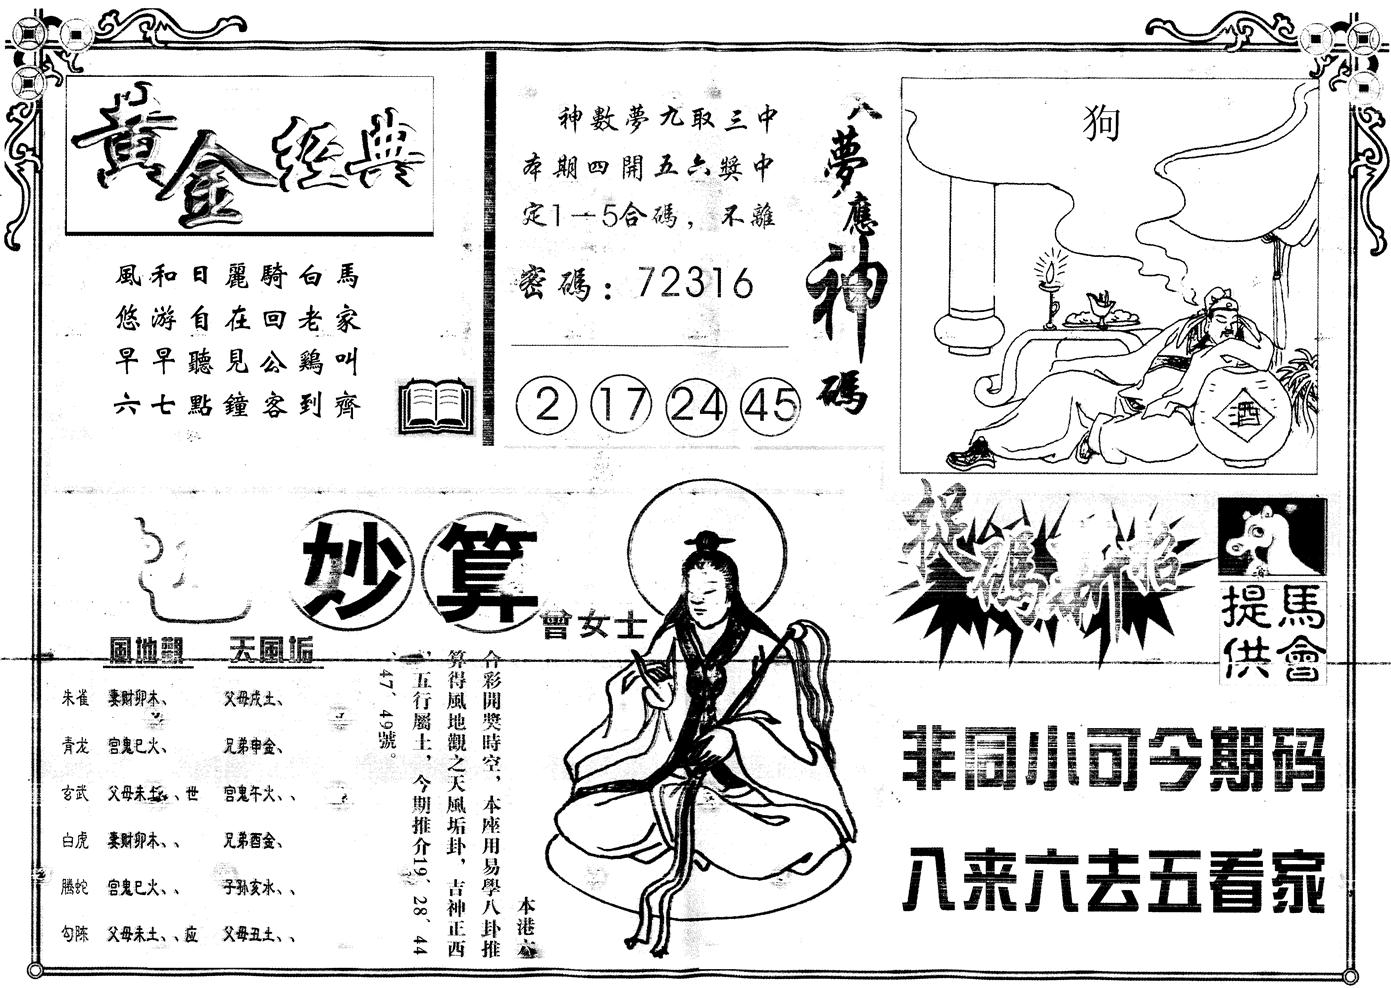 黃金經典
風和日麗騎白馬
悠游自在回老家
早早聽見公鷄叫
六七點鐘客到齊
神數夢九取三中
本期四開五六獎中
定1－5合碼，不離
密碼：72316
2 17 24 45
八夢應神碼
狗
酒
妙算
曾女士
風地觀 天風垢
朱雀 妻财卯木、 父母戌土、
青龙 官鬼巳火、 兄弟申金、
玄武 父母未土、、世 官鬼午火、、
白虎 妻财卯木、、 兄弟酉金、
騰蛇 官鬼巳火、、 子孙亥水、、
勾陈 父母未土、、应 父母丑土、、
本港六
合彩開獎時空，本座用易學八卦推
算得風地觀之天風垢卦，吉神正西
，五行屬土，今期推介19、28、44
、47、49號。
捉碼
馬會
提供
非同小可今期码
八来六去五看家